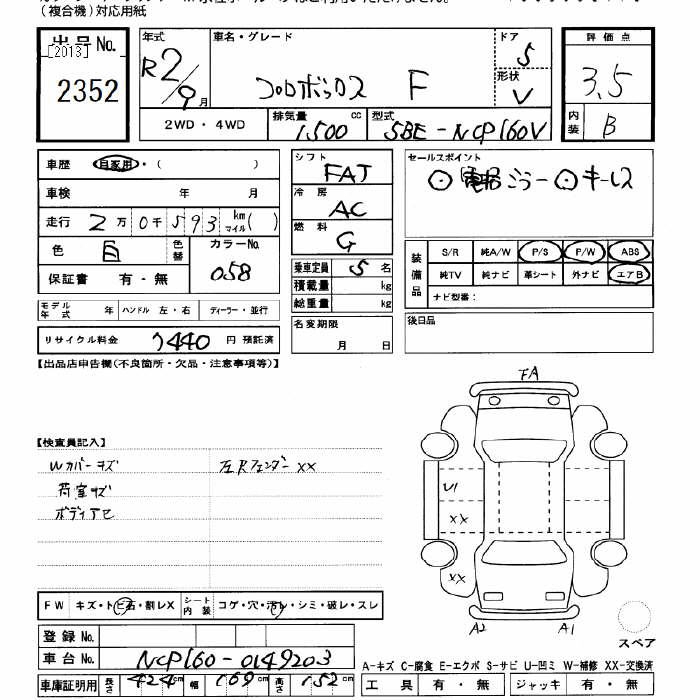 (複合機)対応用紙
出品No.
[2013]
2352
年式 車名・グレード ドア 5
R2/9月 カロロボックス F 形状 V
2WD・4WD 排気量 1500 cc 型式 5BE-NCP160V
評価点
3.5
内装 B
車歴 自家用・( )
車検 年 月
走行 2万0千593 km マイル( )
色 白 色替 カラーNo. 058
保証書 有・無
モデル年式 年 ハンドル 左・右 ディーラー・並行
リサイクル料金 7440 円 預託済
シフト FAT
冷房 AC
燃料 G
乗車定員 5 名
積載量 kg
総重量 kg
名変期限
月 日
セールスポイント
◎電格ミラー◎キーレス
装備品 S/R 純A/W P/S P/W ABS
純TV 純ナビ 革シート 外ナビ エアB
ナビ型番:
後日品
【出品店申告欄(不良箇所・欠品・注意事項等)】
【検査員記入】
Wカバーキズ 左Rフェンダー××
荷室キズ
ボディアセ
FA
U1
XX
XX
A2 A1
スペア
FW キズ・トビ石・割レX シート内装 コゲ・穴・汚レ・シミ・破レ・スレ
登録No.
車台No. NCP160-0149203
車庫証明用 長さ 424cm 幅 169cm 高さ 152cm
A-キズ C-腐食 E-エクボ S-サビ U-凹ミ W-補修 XX-交換済
工具 有・無 ジャッキ 有・無